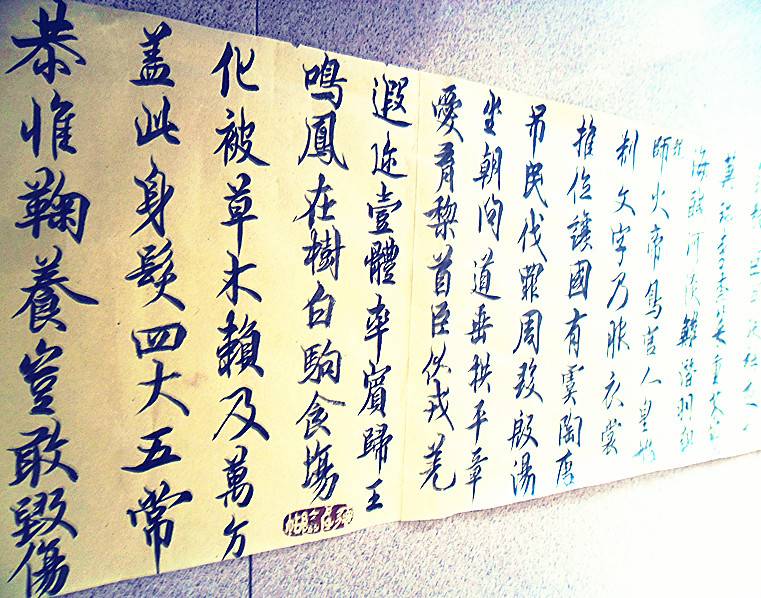 菓珍李柰菜重芥
海鹹河淡鱗潛羽翔
師火帝鳥官人皇始
制文字乃服衣裳
推位讓國有虞陶唐
吊民伐罪周發殷湯
坐朝问道垂拱平章
愛育黎首臣伏戎羌
遐迩壹體率賓歸王
鳴鳳在樹白駒食場
化被草木賴及萬方
盖此身髮四大五常
恭惟鞠養豈敢毀傷